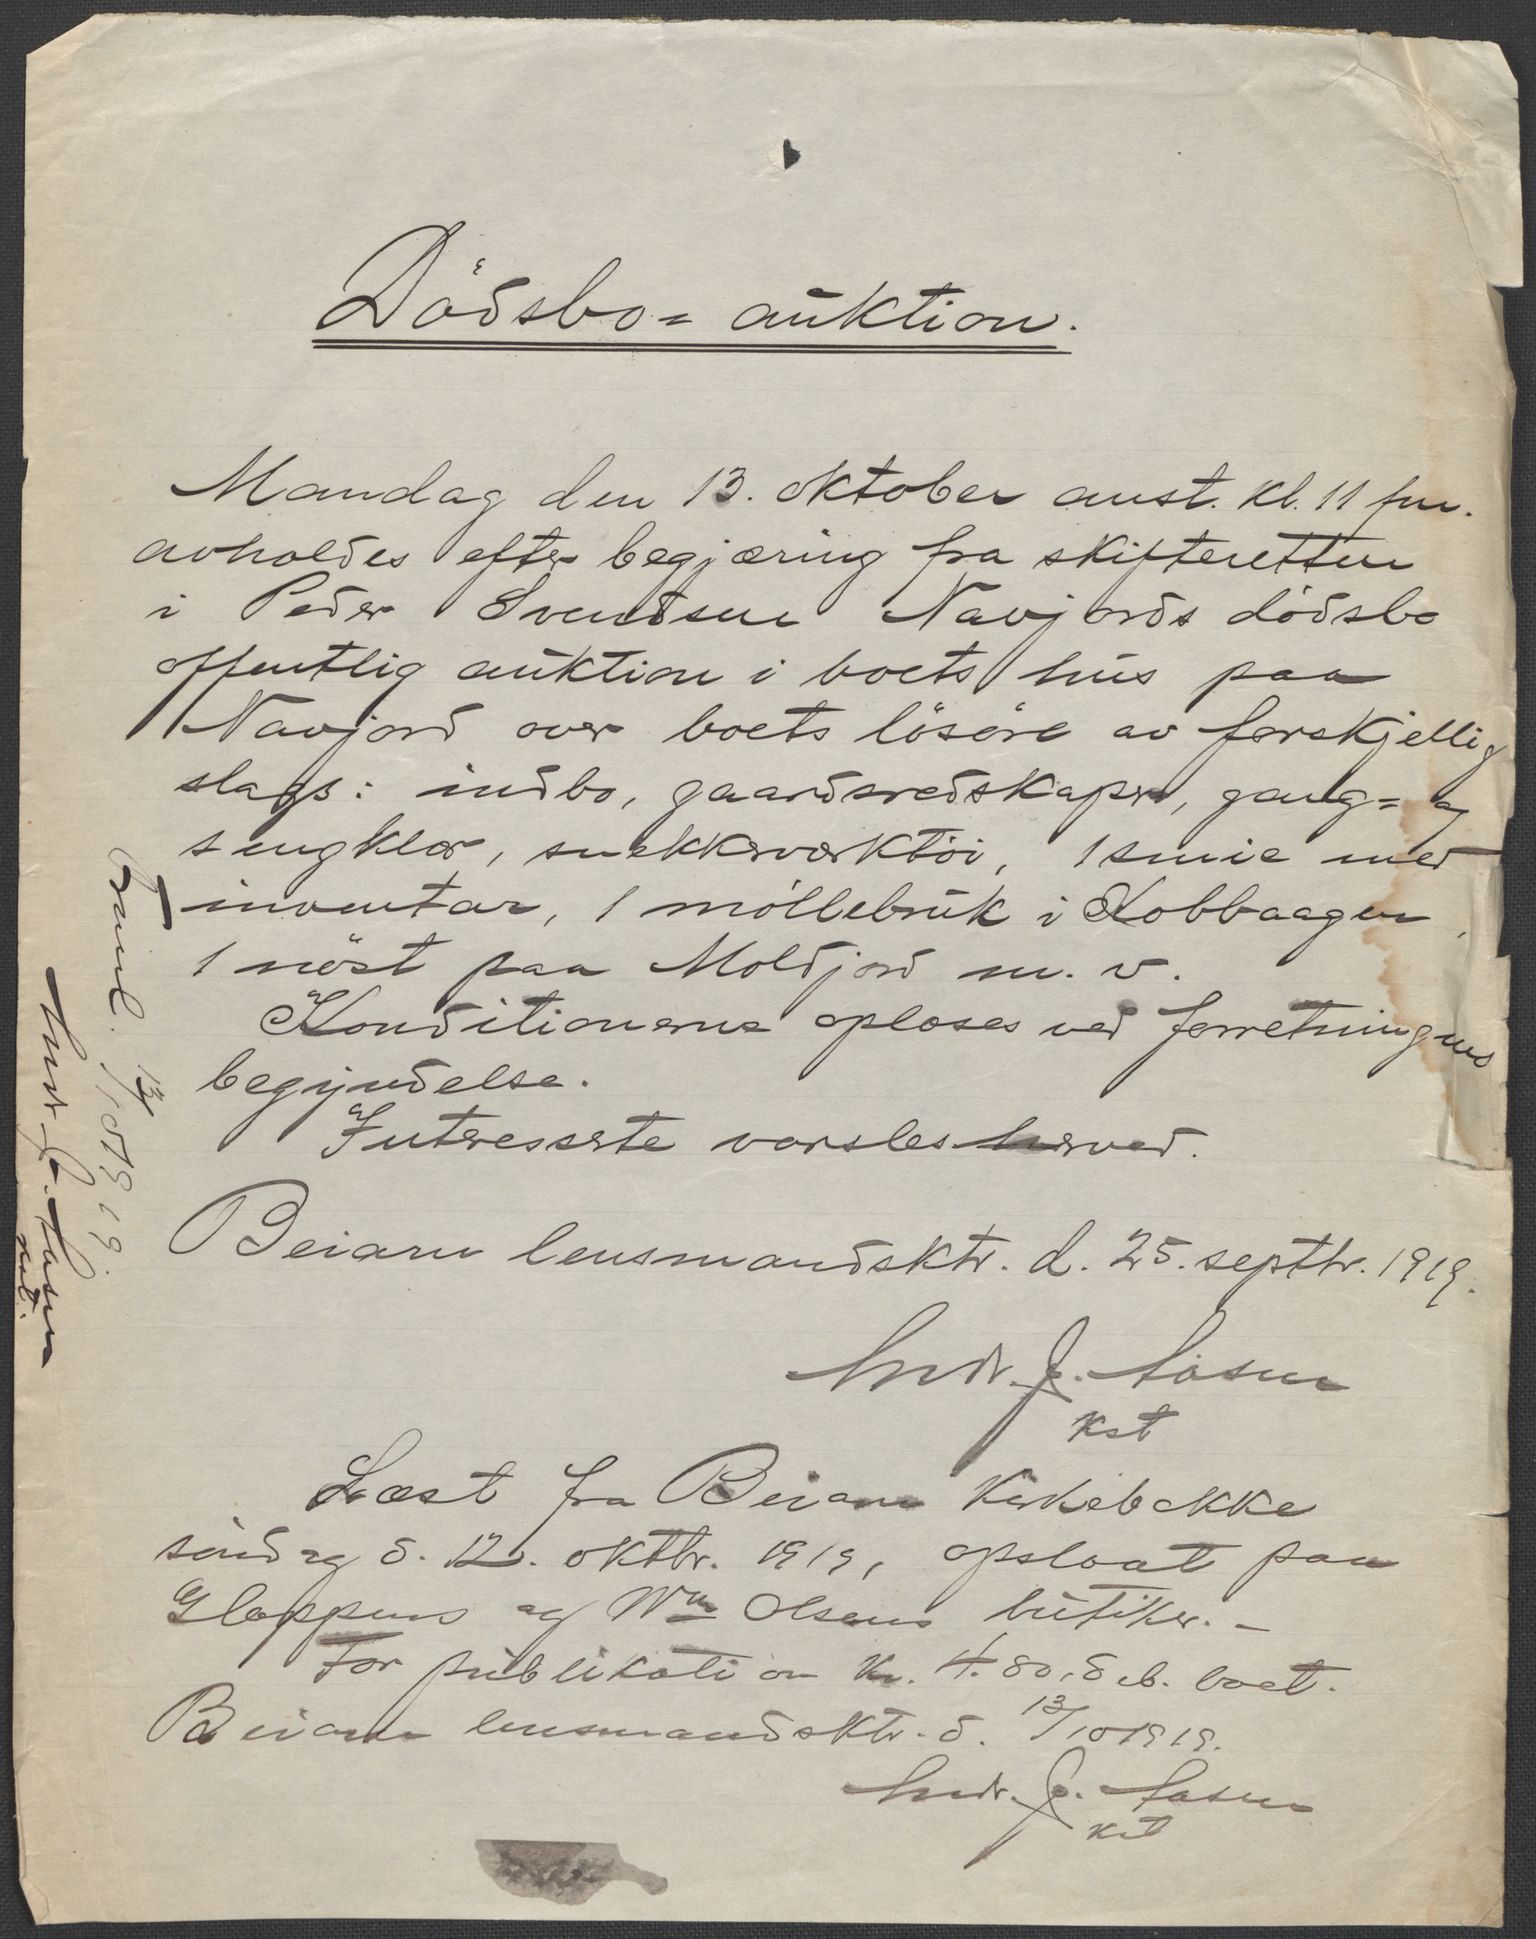 Dödsbo= auktion.
Mandag den 13. oktober anst. kl. 11 fm.
avholdes efter begjæring fra skifteretten
i Peder Svendsen Navjords dödsbo
offentlig auktion i boets hus paa
Navjord over boets lösöre av forskjellig
slags: indbo, gaardsredskaper, gang= og
sengklær, snekkerværktöi, 1 smie med
inventar, 1 möllebruk i Kobbaagen,
1 nöst paa Moldjord m. v.
Konditionerne oplæses ved forretningens
begyndelse.
Interesserte varsles herved.
Beiarn lensmandsktr. d. 25. septbr. 1919.
Andr. J. Aasen
kst
Læst fra Beiarn kirkebakke
söndag d. 12. oktbr. 1919, opslaat paa
Gloppens og Wm Olsens butiker. -
For publikation kr. 4.80, deb. boet.
Beiarn lensmandsktr. d. 13/10 1919.
Andr. J. Aasen
kst
13/10 1919.
Andr. J. Aasen
kst.